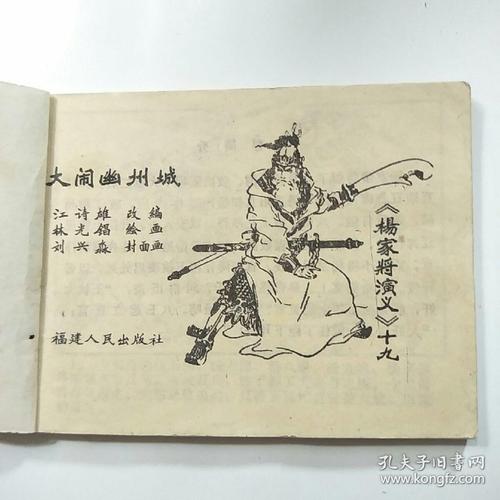 大闹幽州城
江诗雄 改编
林光锠 绘画
刘兴淼 封面画
福建人民出版社
《楊家将演义》十九
孔夫子旧书网
www.kongfz.com